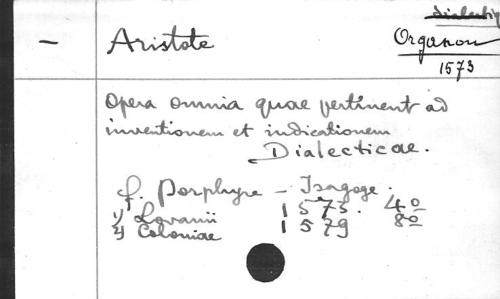 dialectiq
— Aristote
Organon
1573
Opera omnia quae pertinent ad
inventionem et indicationem
Dialecticae.
f. Porphyre — Isagoge.
1) Lovanii 1573. 4º
2) Coloniae 1579 8º